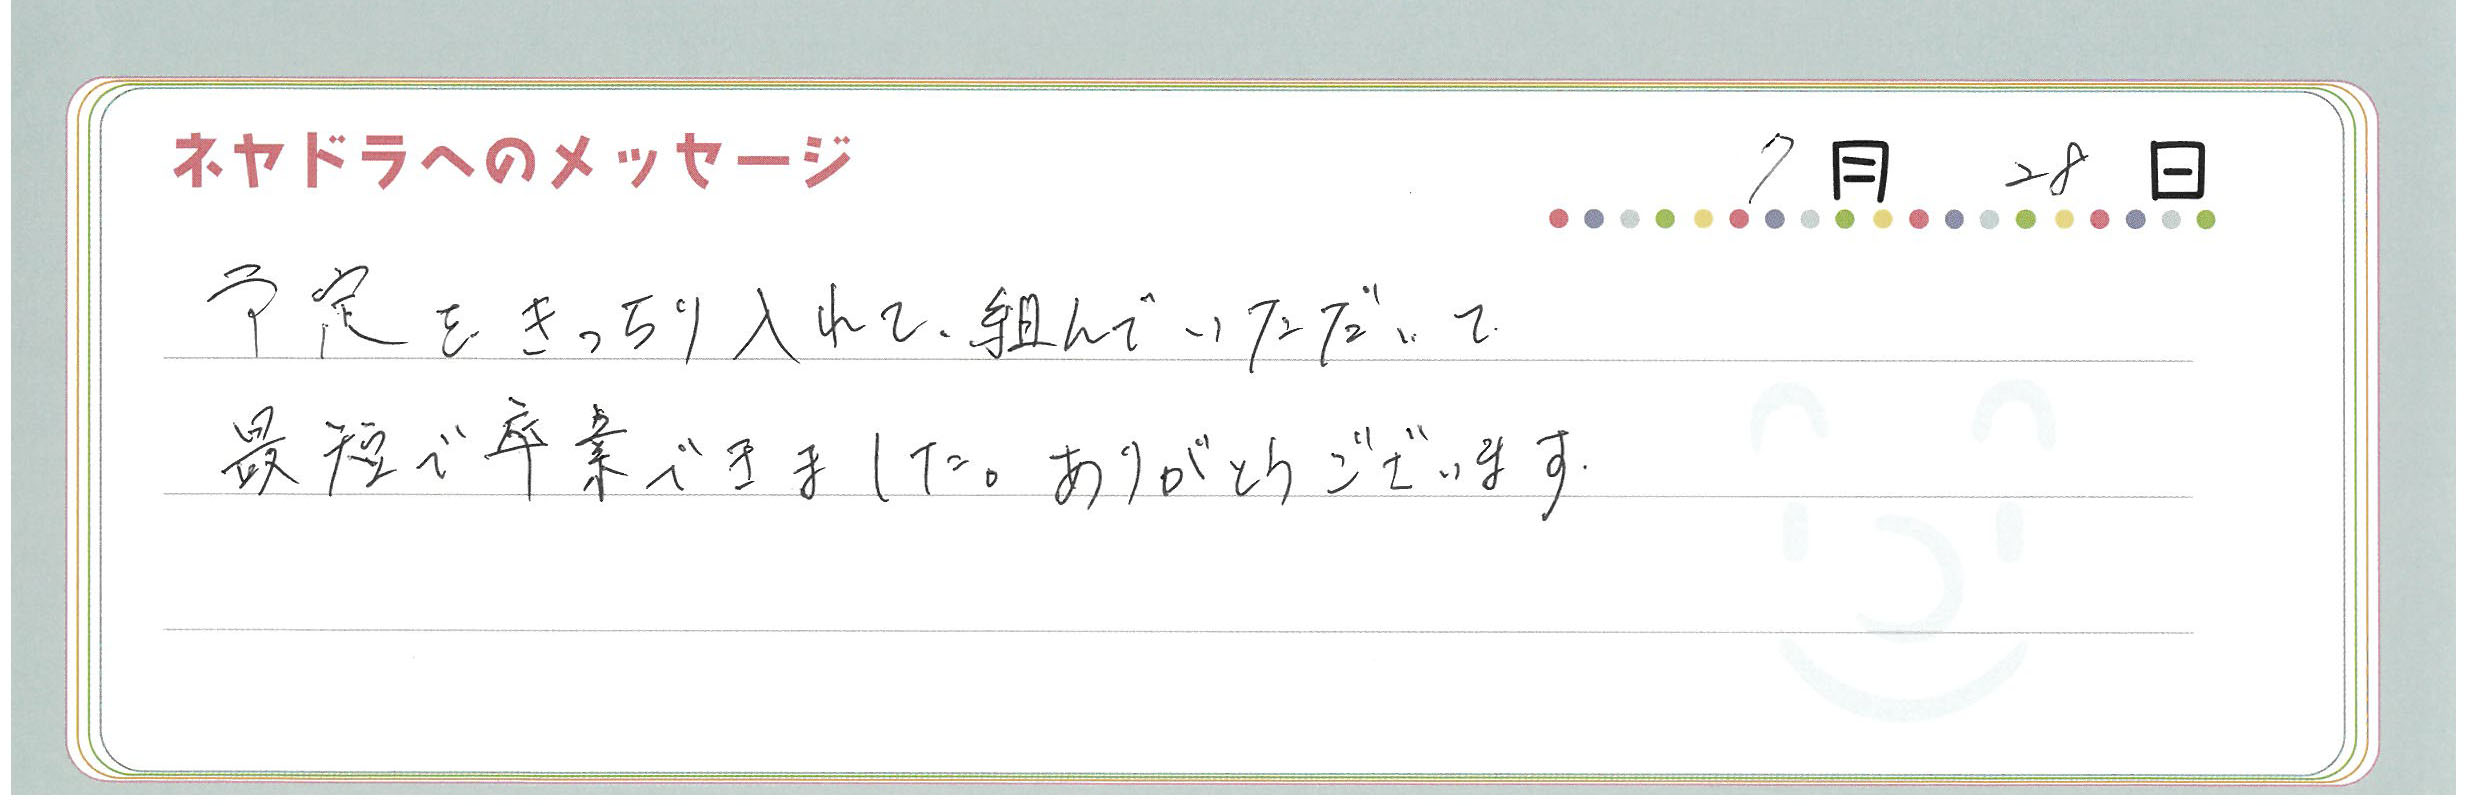 ネヤドラへのメッセージ
7月 28日
予定をきっちり入れて、組んでいただいて
最短で卒業できました。ありがとうございます.